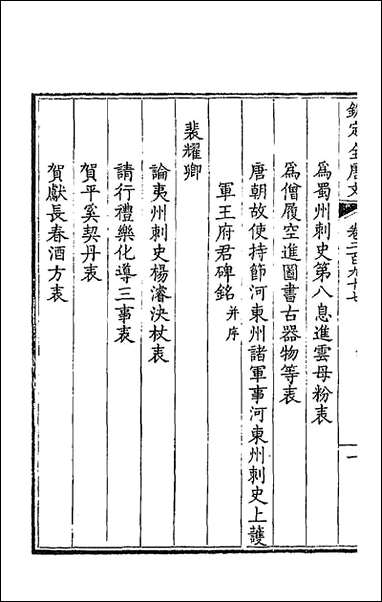 欽定全唐文 卷二百九十七 一
爲蜀州刺史第八息進雲母粉表
爲僧履空進圖書古器物等表
唐朝故使持節河東州諸軍事河東州刺史上護
軍王府君碑銘并序
裴耀卿
論夷州刺史楊濬決杖表
請行禮樂化導三事表
賀平奚契丹表
賀獻長春酒方表